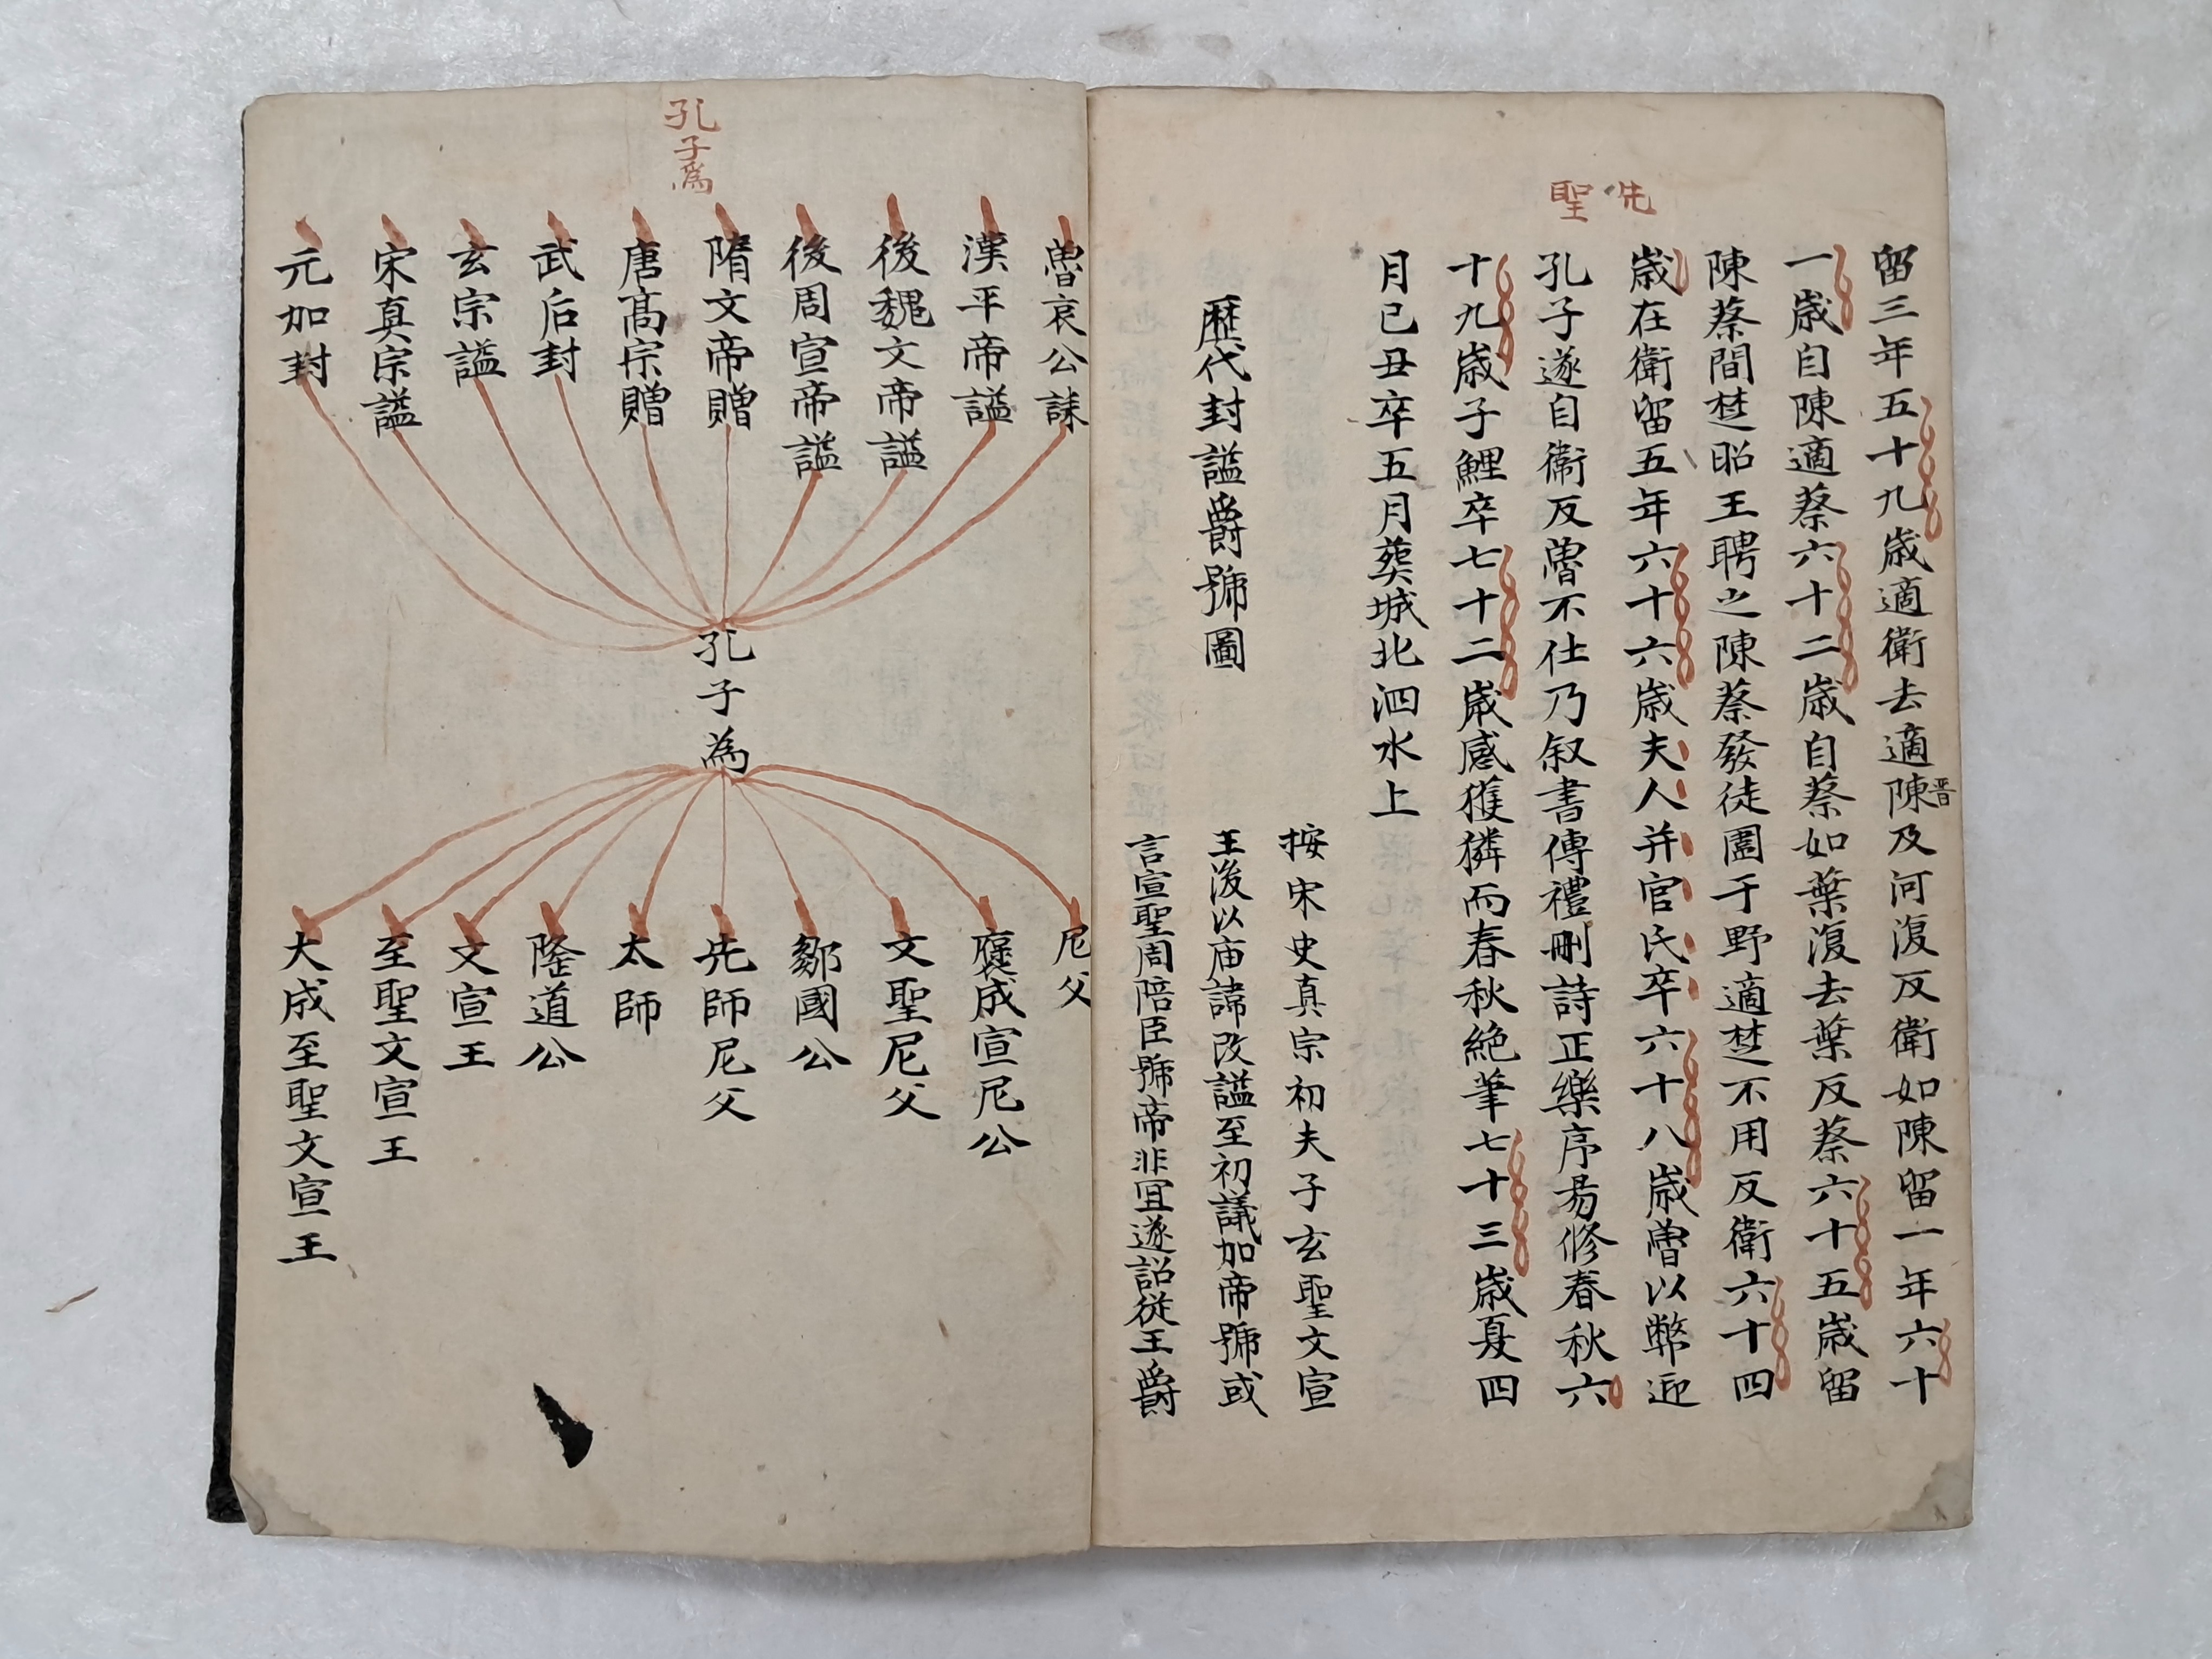 先聖
留三年五十九歲適衛去適陳晋及河復反衛如陳留一年六十
一歲自陳適蔡六十二歲自蔡如葉復去葉反蔡六十五歲留
陳蔡間楚昭王聘之陳蔡發徒圍于野適楚不用反衛六十四
歲在衛留五年六十六歲夫人并官氏卒六十八歲魯以幣迎
孔子遂自衛反魯不仕乃叙書傳禮刪詩正樂序易修春秋六
十九歲子鯉卒七十二歲感獲獜而春秋絶筆七十三歲夏四
月己丑卒五月葬城北泗水上
按宋史真宗初夫子玄聖文宣
歷代封謚爵號圖
王後以庙諱改謚至初議加帝號或
言宣聖周陪臣號帝非宜遂詔従王爵
孔子爲
魯哀公誄
漢平帝謚
後魏文帝謚
後周宣帝謚
隋文帝贈
唐高宗贈
武后封
玄宗謚
宋真宗謚
元加封
孔子為
尼父
褒成宣尼公
文聖尼父
鄒國公
先師尼父
太師
隆道公
文宣王
至聖文宣王
大成至聖文宣王